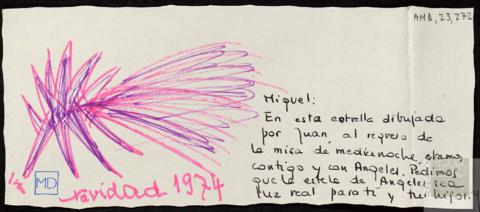 AMD, 23, 272
Miguel:
En esta estrella dibujada
por Juan al regreso de
la misa de medianoche, estamos
contigo y con Angeles. Pedimos
que la estela de Angeles sea
luz real para ti y tus hijos.
MD
navidad 1974